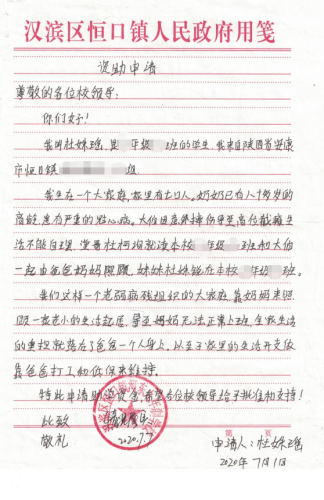 汉滨区恒口镇人民政府用笺
资助申请
尊敬的各位校领导:
你们好!
我叫杜姝瑶,是 年级 班的学生,我来自陕西省安康
市恒口镇 组
我生在一个大家庭,家里有七口人。奶奶已有八十多岁的
高龄,患有严重的冠心病。大伯因意外摔伤至高位截瘫生
活不能自理,堂哥杜柯 就读本校 年级 班和大伯
一起由爸爸妈妈照顾,妹妹杜姝 在本校 年级 班。
我们这样一个老弱病残组织的大家庭,靠妈妈来照
顾一家老小的生活起居,导至妈妈无法正常上班,全家生活
的重担就落在了爸爸一个人身上,以至于家里的生活开支依
靠爸爸打工和低保来维持。
特此申请助 资金,希望各位校领导给予批准和支持!
此致
敬礼
2020.7.7
第 页
申请人:杜姝瑶
2020年7月1日